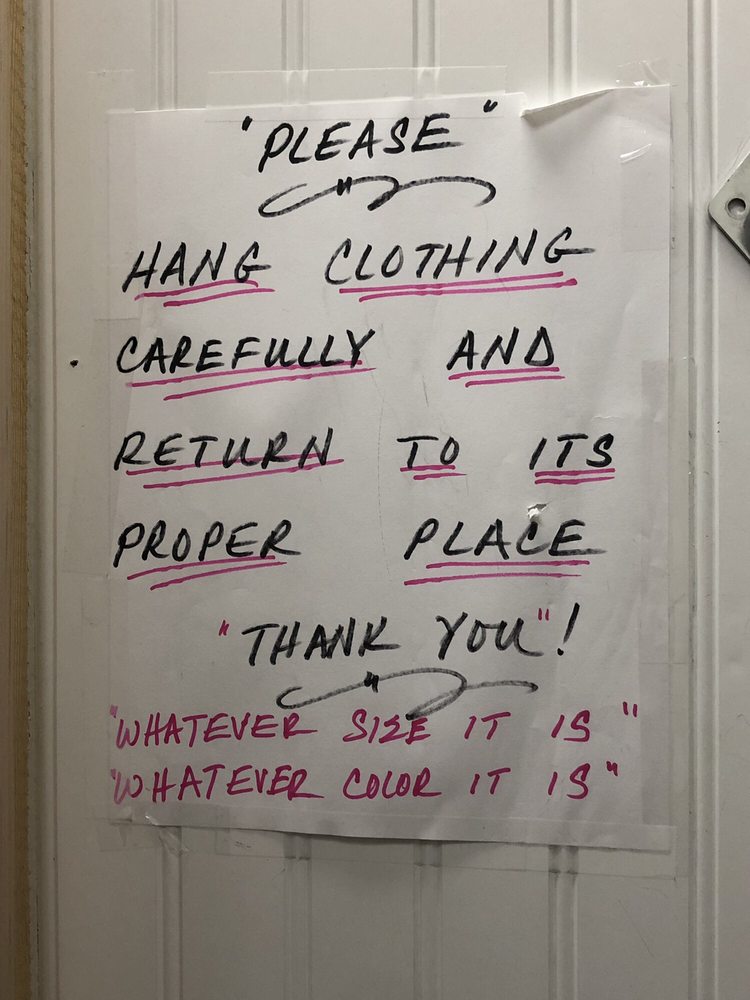 "PLEASE"
HANG CLOTHING
CAREFULLY AND
RETURN TO ITS
PROPER PLACE
"THANK YOU"!
"WHATEVER SIZE IT IS"
"WHATEVER COLOR IT IS"